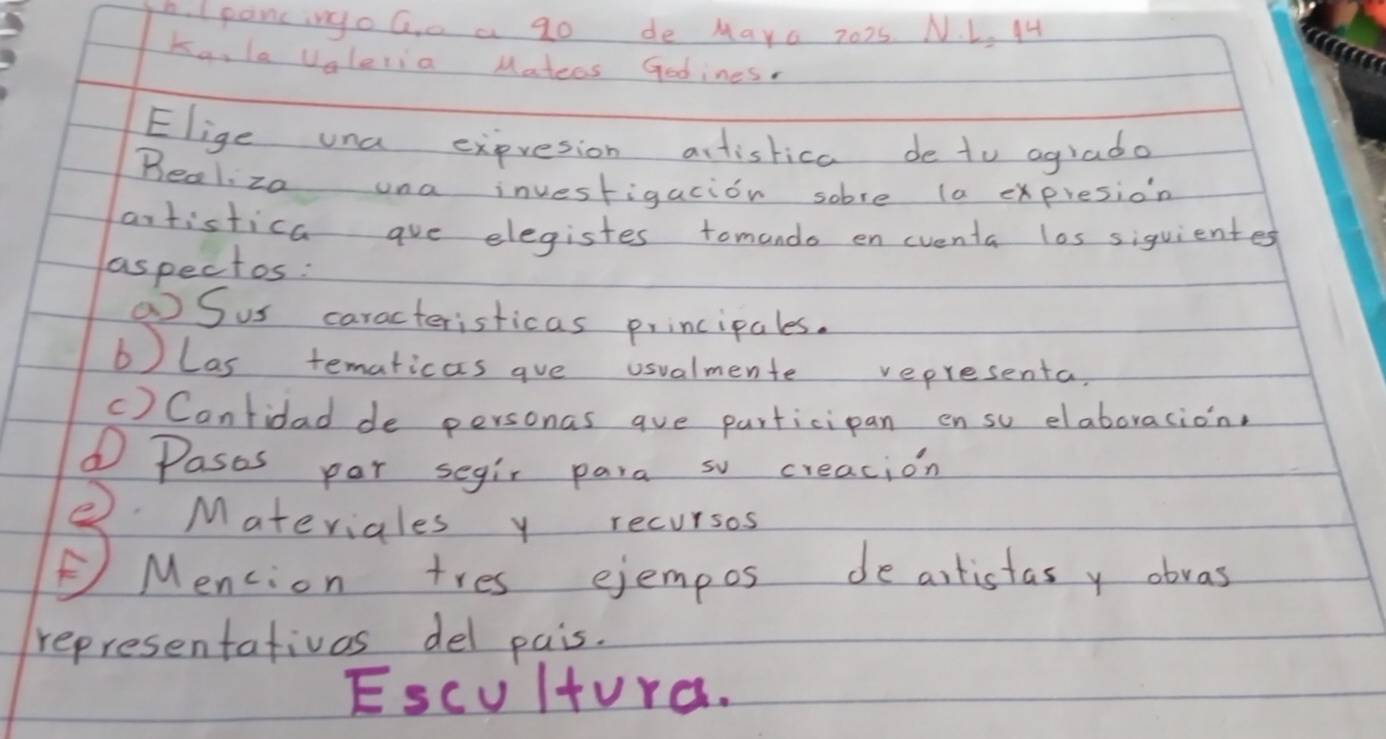 a 20 de Mayo 2025 N.L. 14
Karla Valeria Mateos Godines.
Elige una expresion artistica de tu agrado
Realiza una investigación sobre la expresión
artistica que elegistes tomando en cuenta los siguientes
aspectos:
a) Sus caracteristicas principales.
b) Las tematicas que usualmente representa.
c) Cantidad de personas que participan en su elaboración.
d) Pasos por segir para su creación
e). Materiales y recursos
F) Mencion tres ejempos de artistas y obras
representativas del pais.
Escultura.